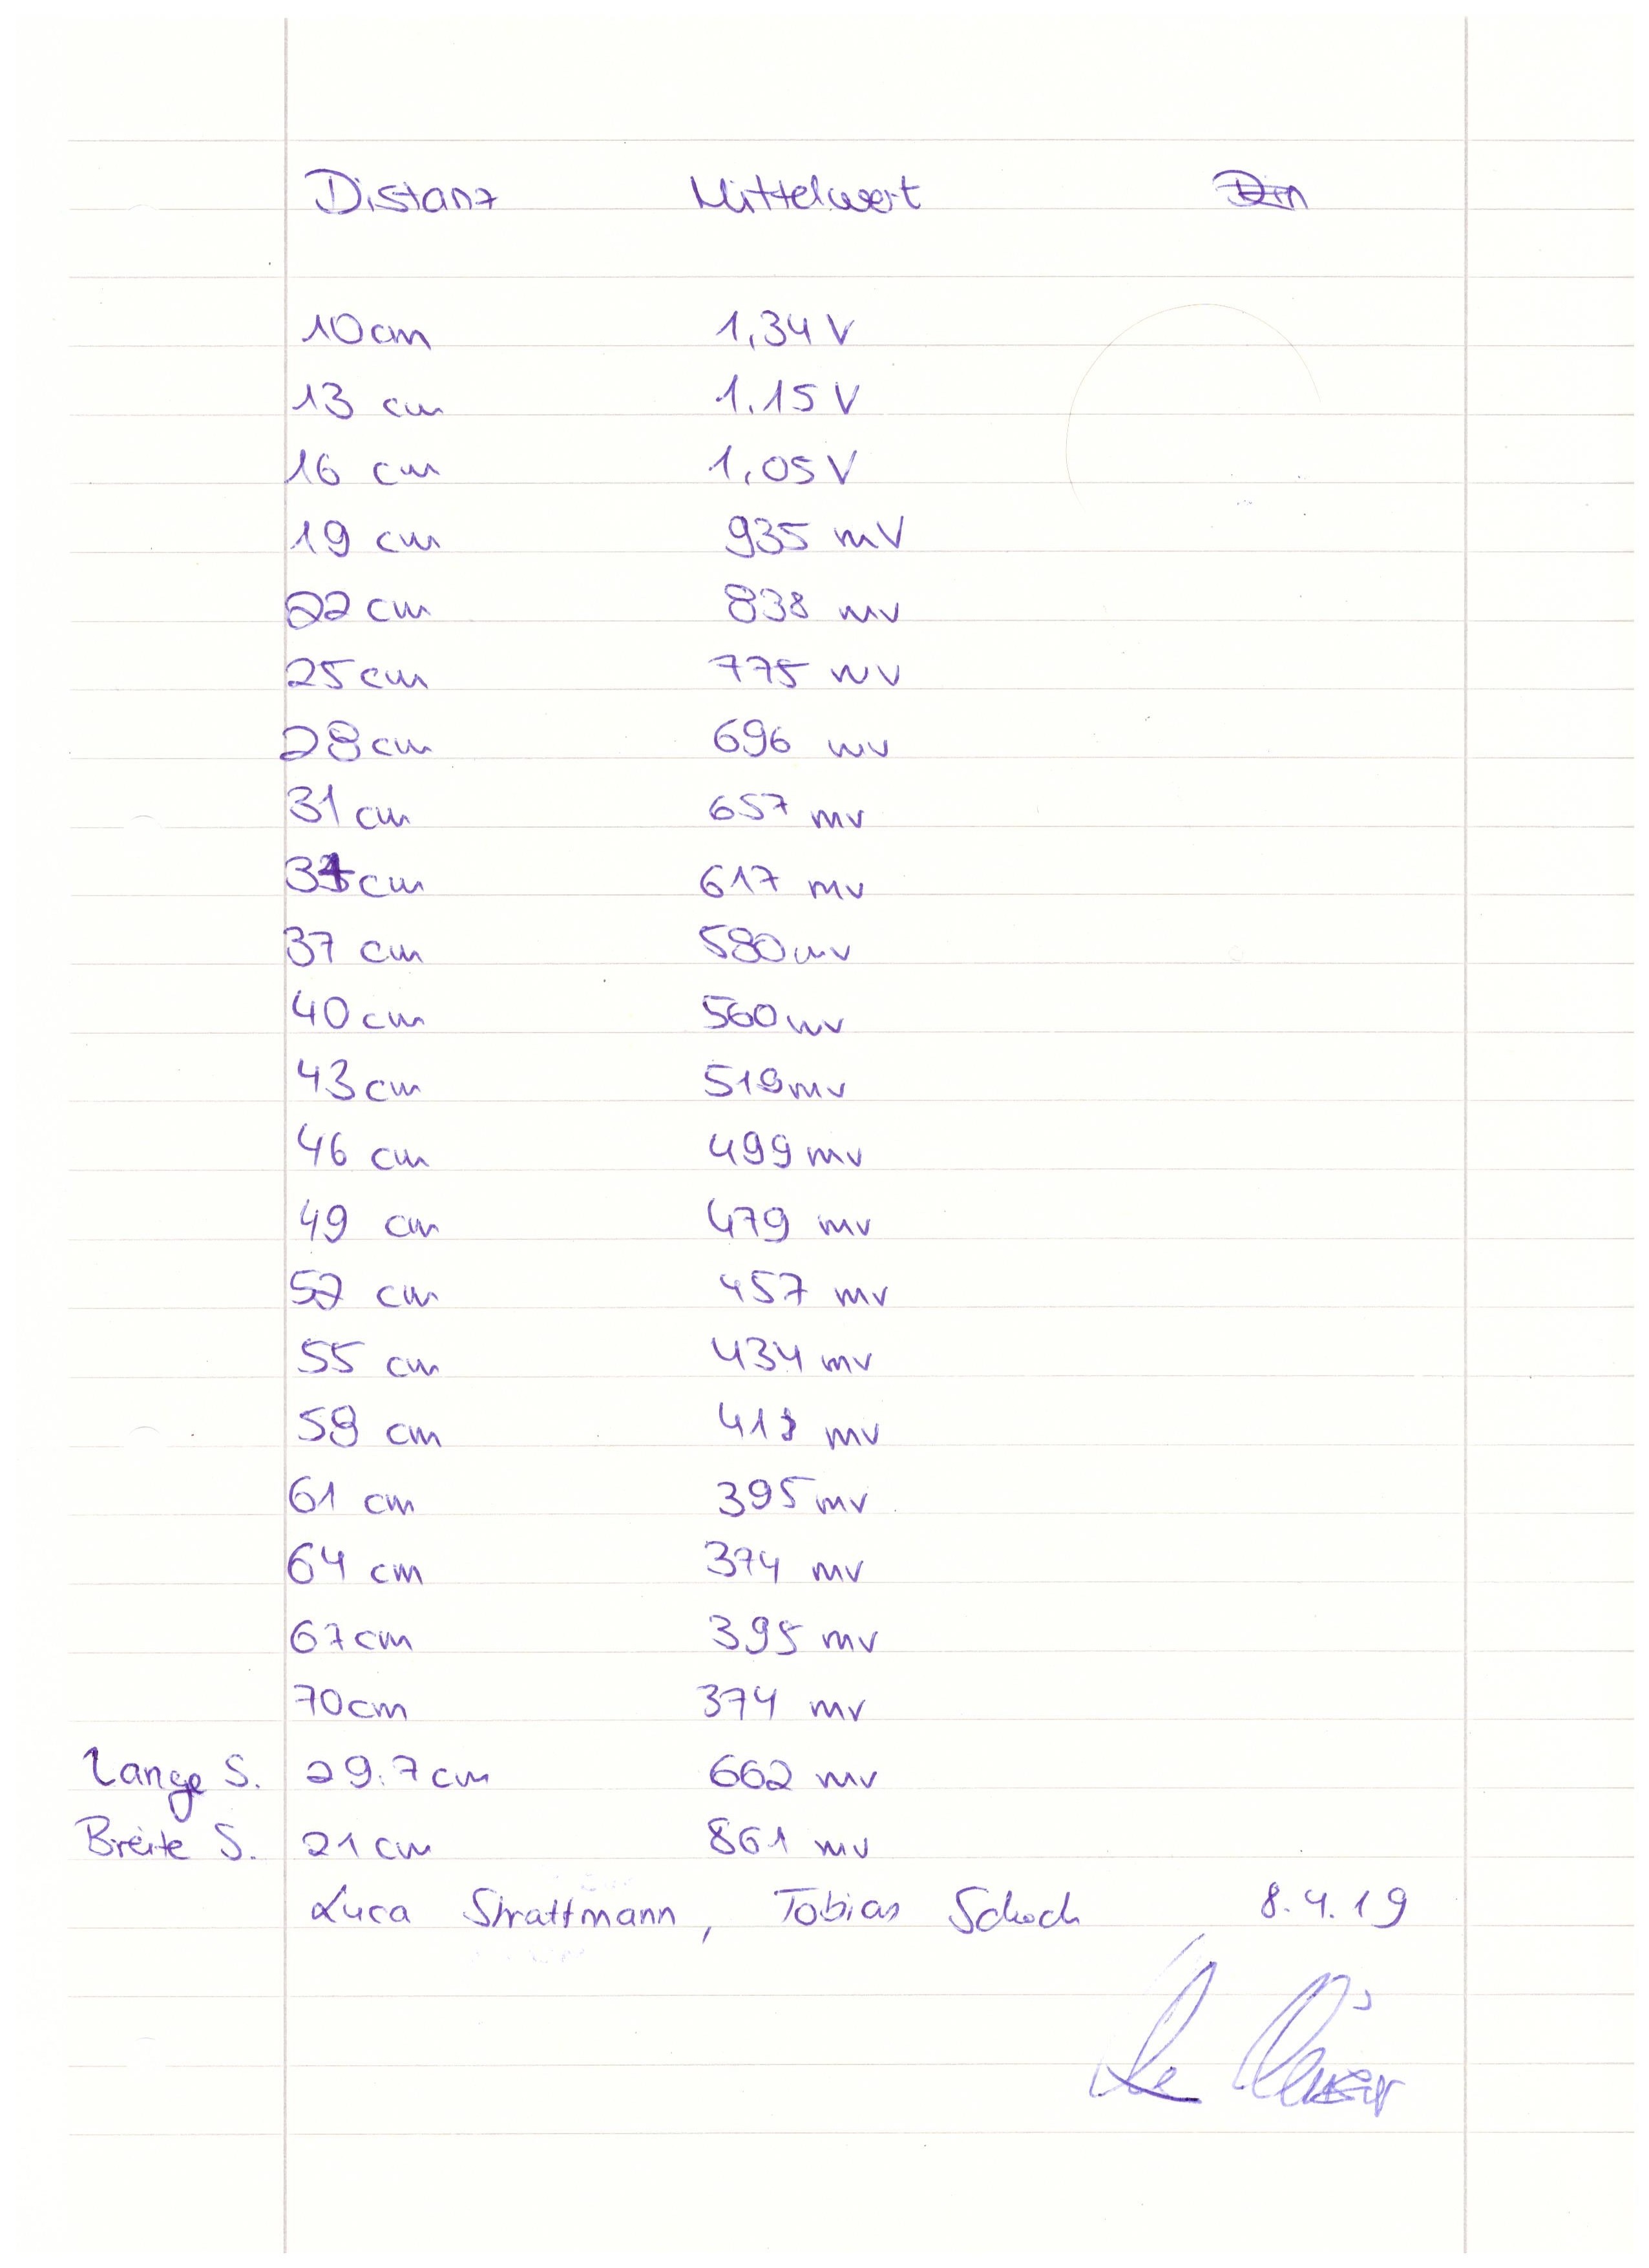 Distanz Mittelwert
10cm 1,34 V
13 cm 1.15 V
16 cm 1,05 V
19 cm 935 mV
22 cm 838 mv
25 cm 775 mv
28 cm 696 mv
31 cm 657 mv
34 cm 617 mv
37 cm 580 mv
40 cm 560 mv
43 cm 519 mv
46 cm 499 mv
49 cm 479 mv
52 cm 457 mv
55 cm 434 mv
cm mv
61 cm 395 mv
64 cm 374 mv
67 cm 395 mv
70 cm 374 mv
Lange S. 29.7 cm 662 mv
Breite S. 21 cm 861 mv
Luca Strattmann, Tobias Schoch 8.4.19